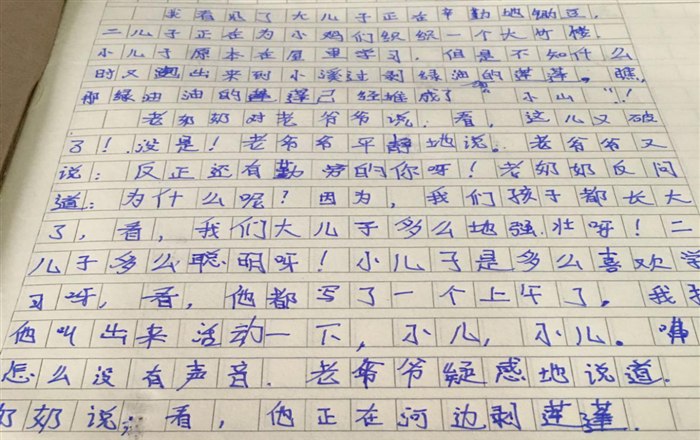 看见了大儿子正在辛勤地锄豆，
二儿子正在为小鸡们织织一个大竹楼。
小儿子原本在屋里学习，但是不知什么
时又跑出来到小溪过剥绿油的莲蓬。瞧，
那绿油油的莲蓬已经堆成了"小山"！
老奶奶对老爷爷说：看，这儿又破
了！没是！老爷爷平静地说。老爷爷又
说：反正还有勤劳的你呀！老奶奶反问
道：为什么呢？因为，我们孩子都长大
了，看，我们大儿子多么地强壮呀！二
儿子多么聪明呀！小儿子是多么喜欢学
习呀，看，他都写了一个上午了。我
他叫出来活动一下，小儿，小儿。
怎么没有声音．老爷爷疑惑地说道．
奶奶说：看，他正在河边剥莲蓬．